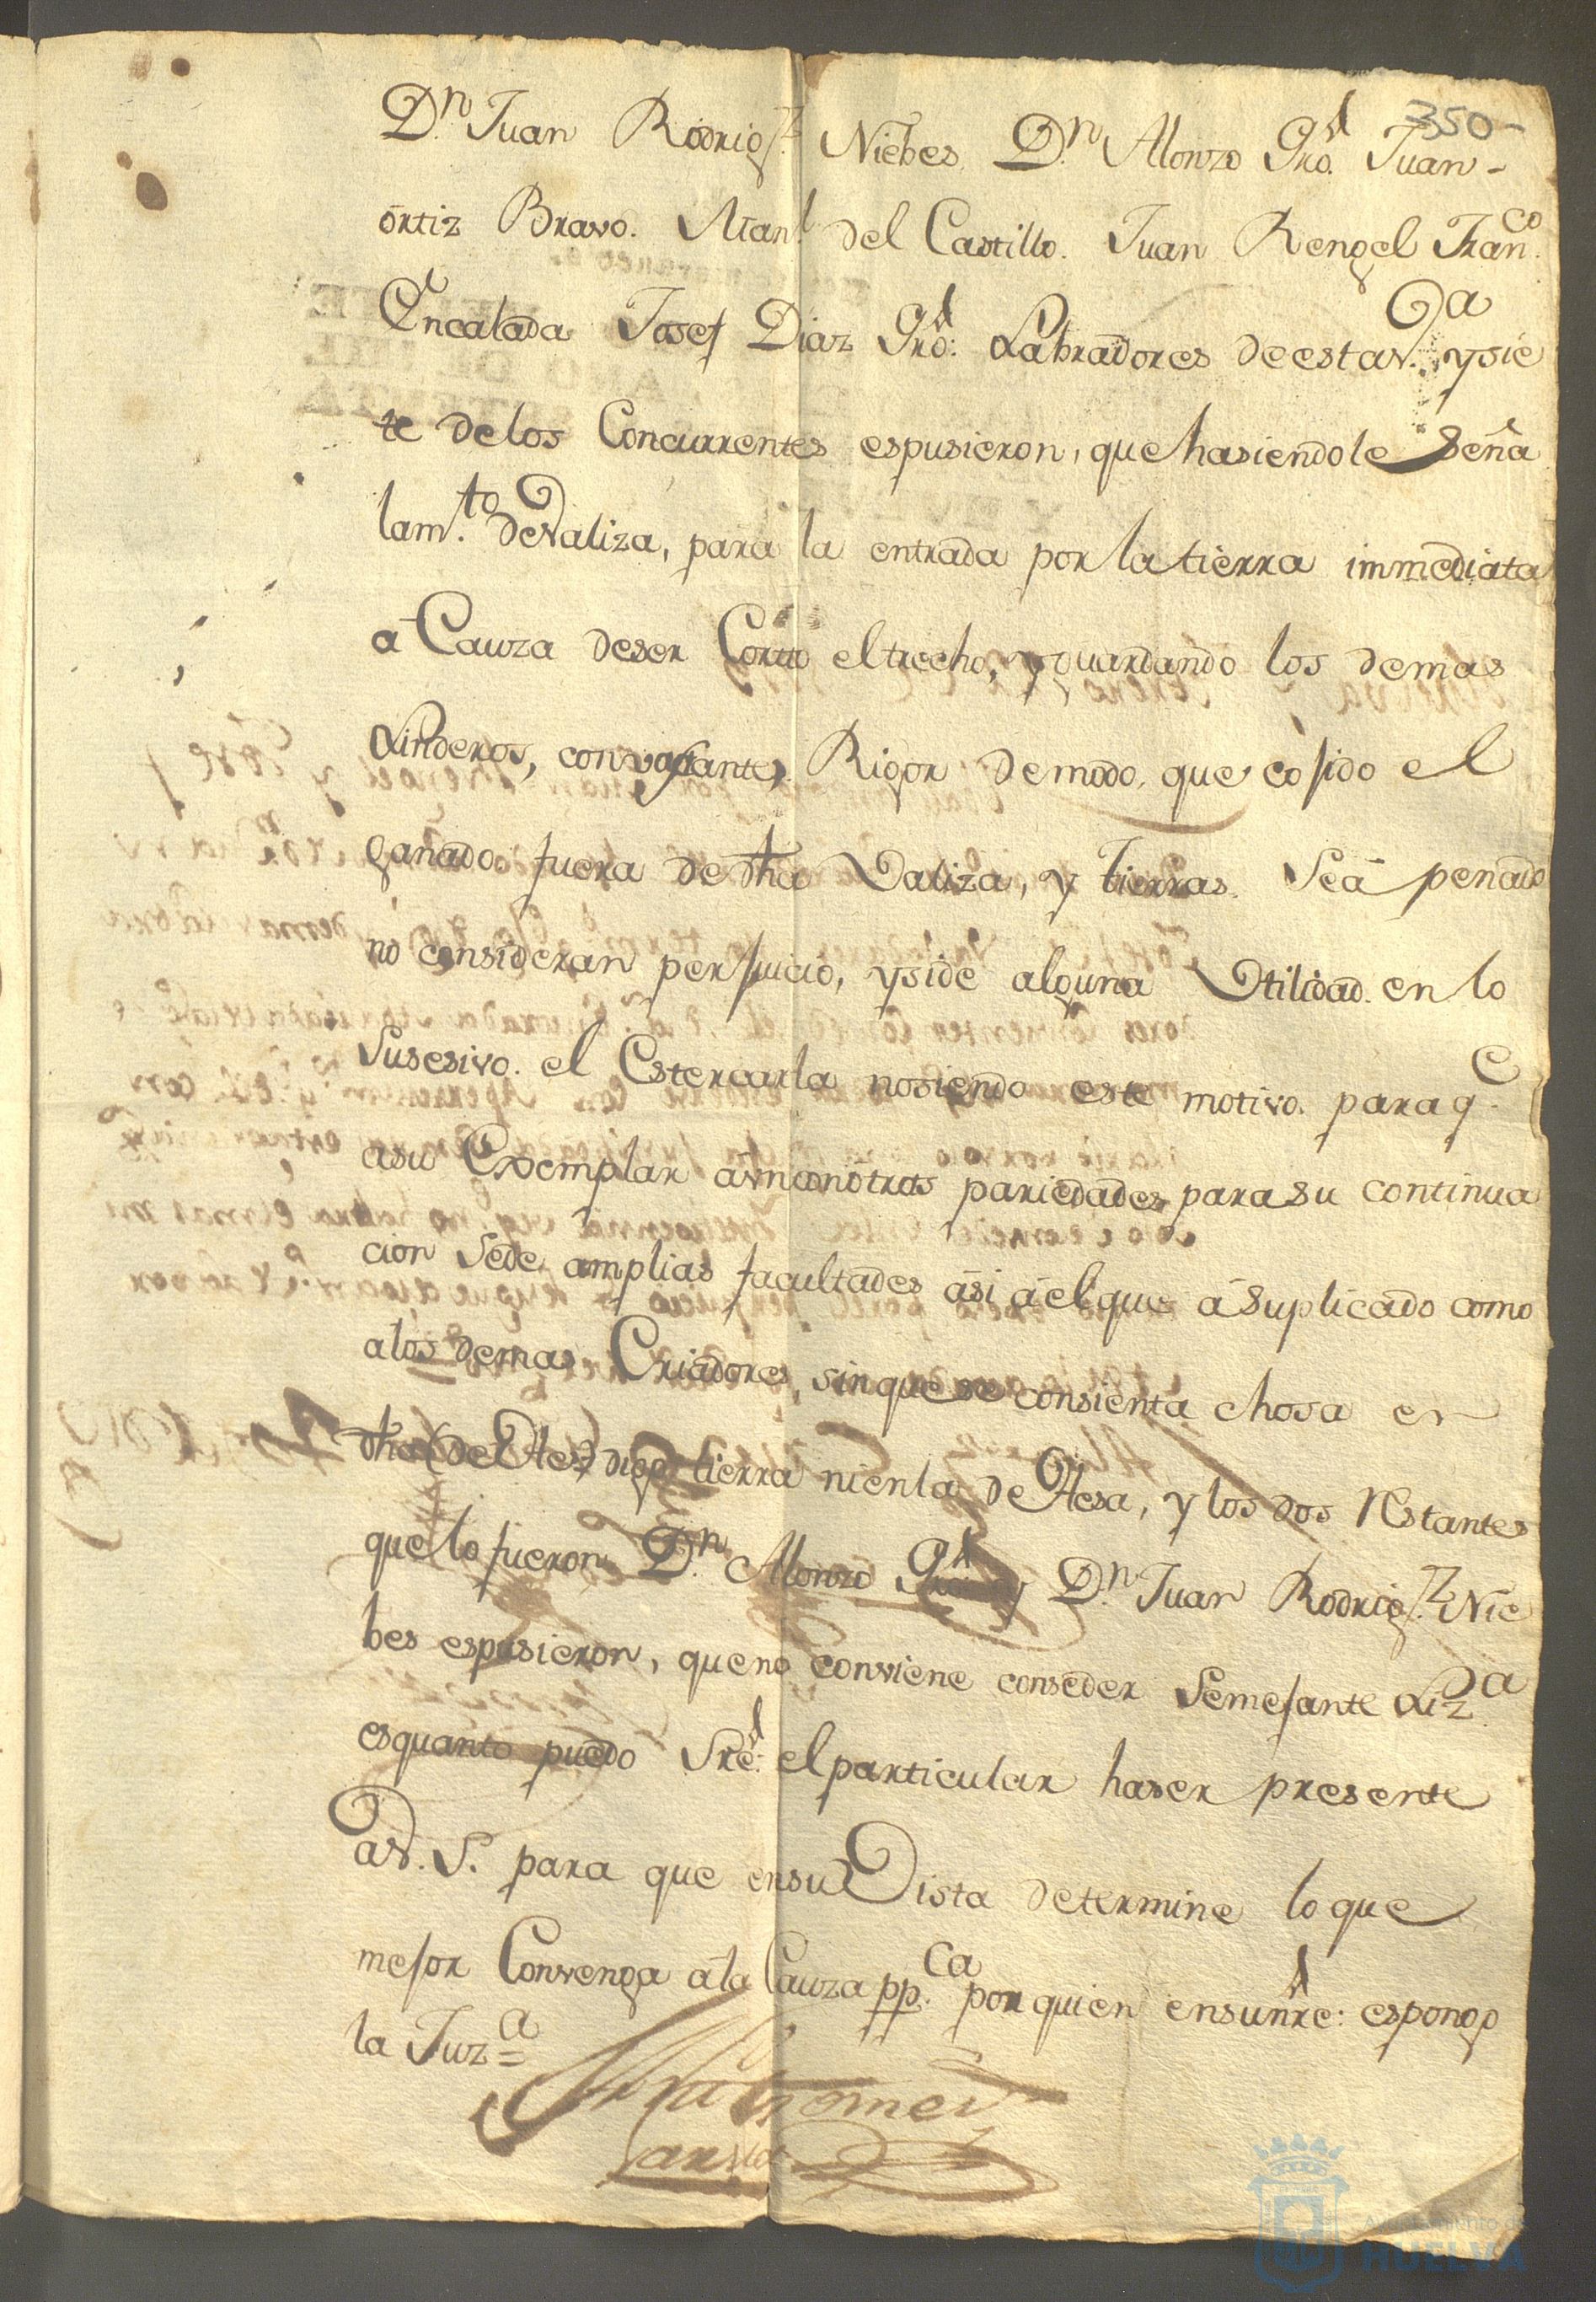 350-
Dn. Juan Rodrigz. Niebes, Dn. Alonzo Gro. Juan-
ortiz Bravo. Manl. del Castillo. Juan Rengel Franco.
Encalada Josef Diaz Gro: Labradores de esta Va. y sie
te delos Concurrentes espusieron, que hasiendole Seña
lamto. de Valiza, para la entrada por la tierra immediata
a Cauza deser Corto eltrecho, y guardando los demas
Linderos, con vastante Rigor demodo, que cojido el
ganado fuera de dha Valiza, y tierras. Seá penado
no consideran perjuicio, yside alguna Utilidad. en lo
Susesivo. el Estercarla nosiendo este motivo. para qe.
asu Exemplar avnconotras pariedades para su continua
cion Sede amplias facultades ási á elque á suplicado como
alos demas Criadores, sinque se consienta chosa en
dha (deHesa) digo tierra nienla deHesa, y los dos Restantes
que lo fueron Dn. Alonzo Gro. y Dn. Juan Rodrigz. Nie
bes espusieron, queno conviene conseder Semejante Liza.
esquanto puedo Sre: elparticular haser presente
aV. S. para que ensu Vista determine lo que
mejor Convenga ála Cauza ppca. por quien ensunre: espongo
la Juza=
Ayuntamiento de
HUELVA